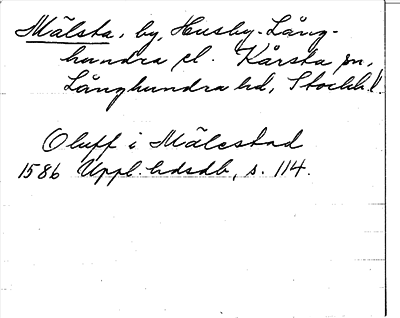 Mälsta, by, Husby-Lång-
hundra el. Kårsta sn,
Långhundra hd, Stockh. l.
Oluff i Mälestad
1586 Uppl. hdsdb, s. 114.